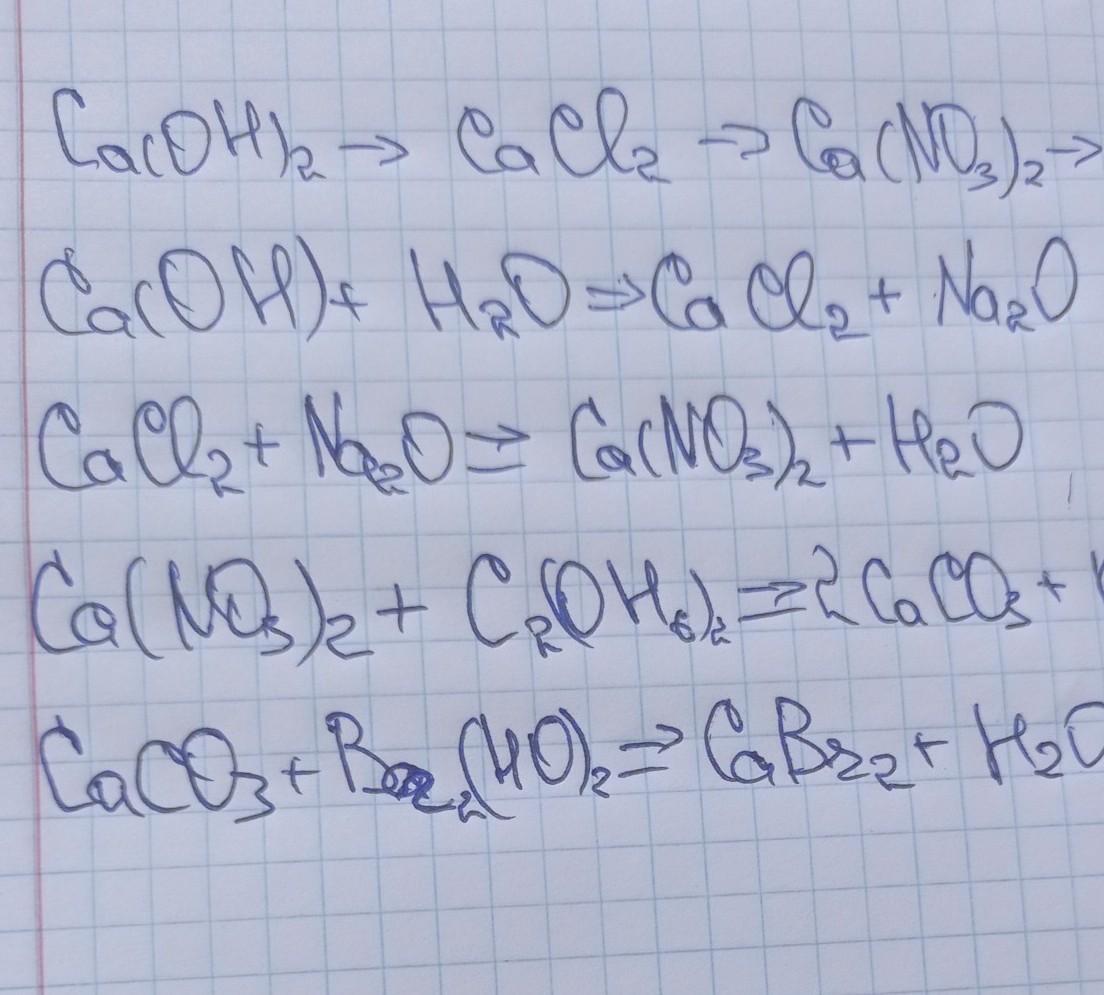 Ca(OH)₂ → CaCl₂ → Ca(NO₃)₂ →
Ca(OH)+ H₂O ⇒ CaCl₂ + Na₂O
CaCl₂ + Na₂O ⇒ Ca(NO₃)₂ + H₂O
Ca(NO₃)₂ + C₂(OH₆)₂ ⇒ 2CaCO₃ +
CaCO₃ + (HO)₂ ⇒ CaBr₂ + H₂O